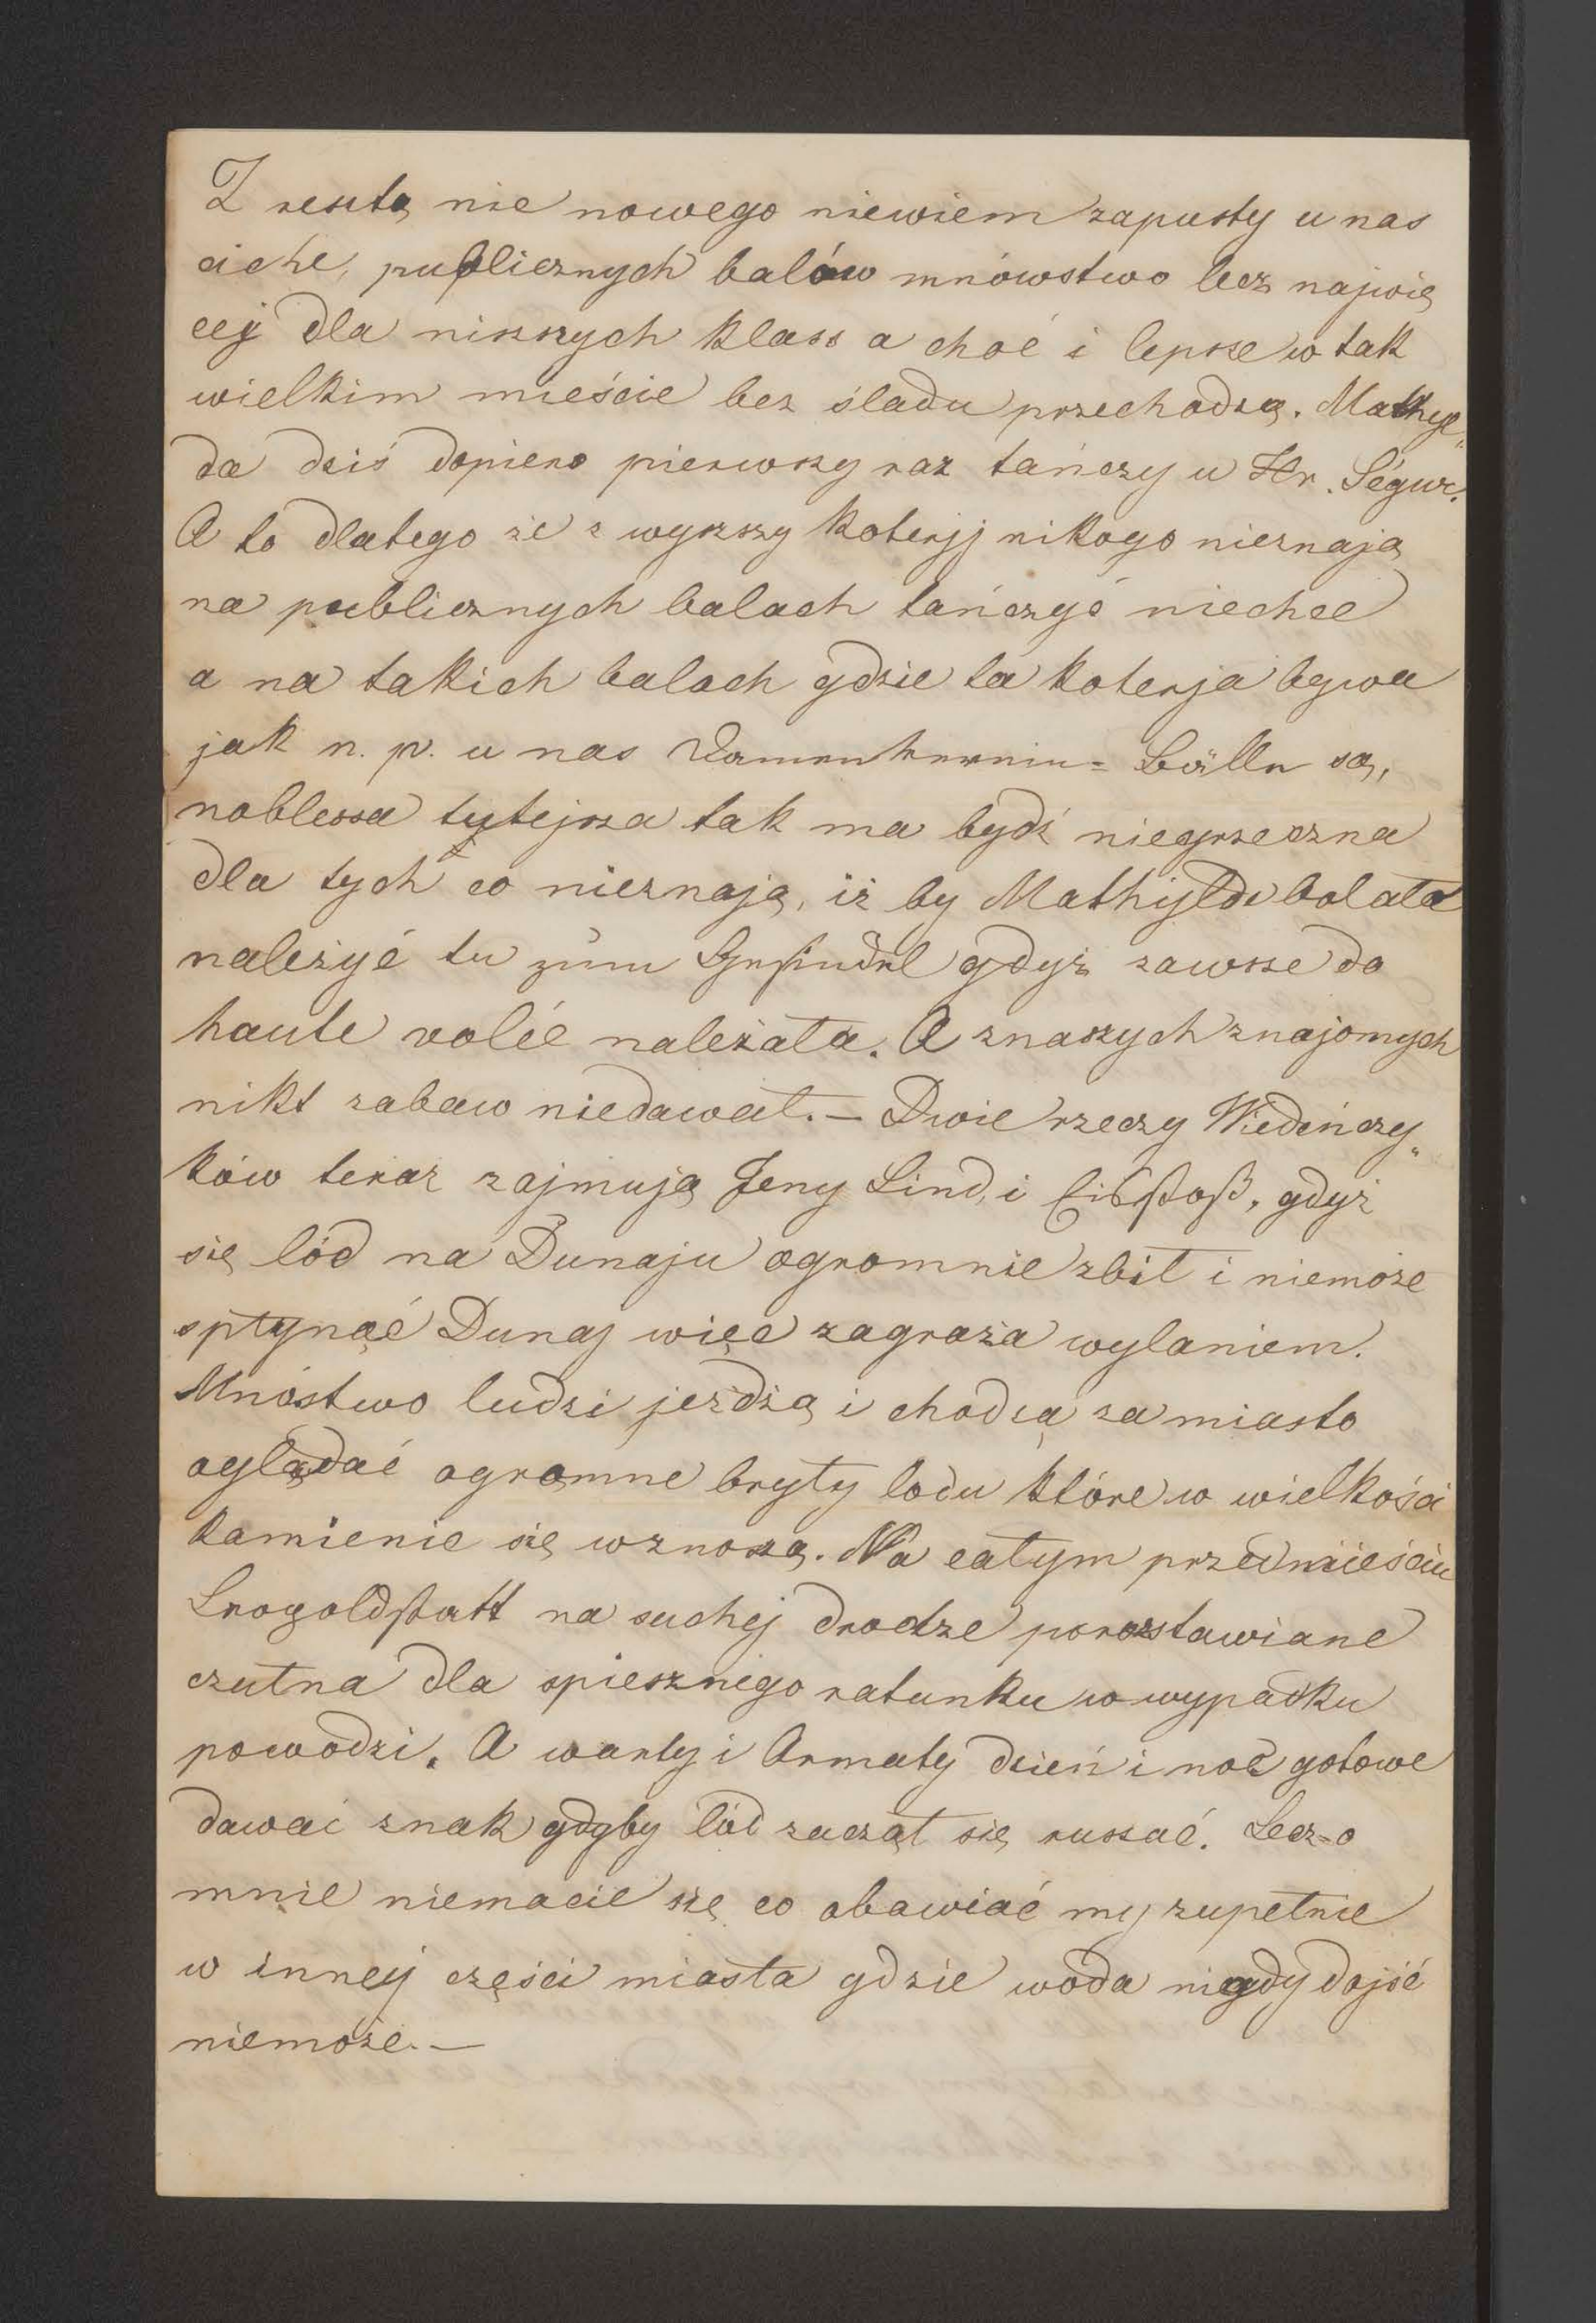 Z resztą nic nowego niewiem zapusty u nas
ciche, publicznych balów mnówstwo lecz najwię
cej dla niższych klass a choć i lepsze w tak
wielkim mieście bez śladu przechodzą. Mathyl„
da dziś dopiero pierwszy raz tańczy u Hr. Ségur.
A to dlatego że z wyższy koteryj nikogo nieznają
na publicznych balach tańczyć niechce
a na takich balach gdzie ta koterja bywa
jak n. p. u nas Damenverein= Bälle są,
noblessa tytejsza tak ma bydź niegrzeczna
dla tych co nieznają, iż by Mathyldę bolało
należyć tu zum Gesindel gdyż zawsze do
haute volée należała. A znaszych znajomych
nikt zabaw niedawał. — Dwie rzeczy Wiedeńczy„
ków teraz zajmują Jeny Lind, i Eisstoß, gdyż
się lód na Dunaju ogromnie zbił i niemoże
spłynąć Dunaj więc zagraża wylaniem.
Mnóstwo ludzi jeżdżą i chodzą za miasto
oglądać ogromne bryły lodu które w wielkości
kamienie się wznoszą. Na całym przedmieściu
Leopoldstatt na suchej drodze porozstawiane
czułna dla spiesznego ratunku w wypadku
powodzi. A warty i Armaty dzień i noc gotowe
dawać znak gdyby lód zaczął się ruszać. Lecz=o
mnie niemacie się co obawiać my zupełnie
w innej części miasta gdzie woda nigdy dojść
niemoże. —